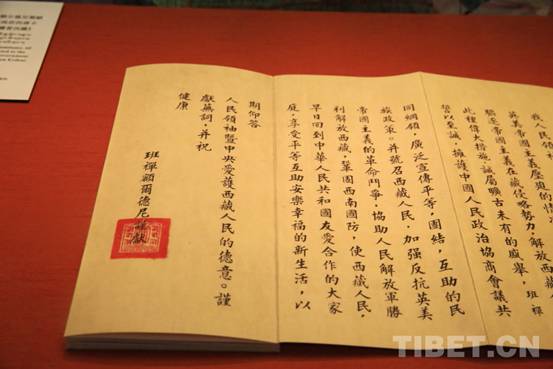 我人民領
帝國主義壓迫的情
驅逐帝國主義在藏侵略勢力,解放西
此種偉大措施,誠屬曠古未有的盛舉,班禪
誓以至誠,擁護中國人民政治協商會議共
同綱領,廣泛宣傳平等,團結,互助的民
族政策。并號召西藏人民,加强反抗英美
帝國主義的革命鬥爭,協助人民解放軍勝
利解放西藏,鞏固西南國防,使西藏人民,
早日回到中華人民共和國友愛合作的大家
庭,享受平等互助安樂幸福的新生活,以
期仰答
人民領袖暨中央愛護西藏人民的德意。謹
獻蕪詞,并祝
健康
班禪額爾德尼 獻
TIBET.CN